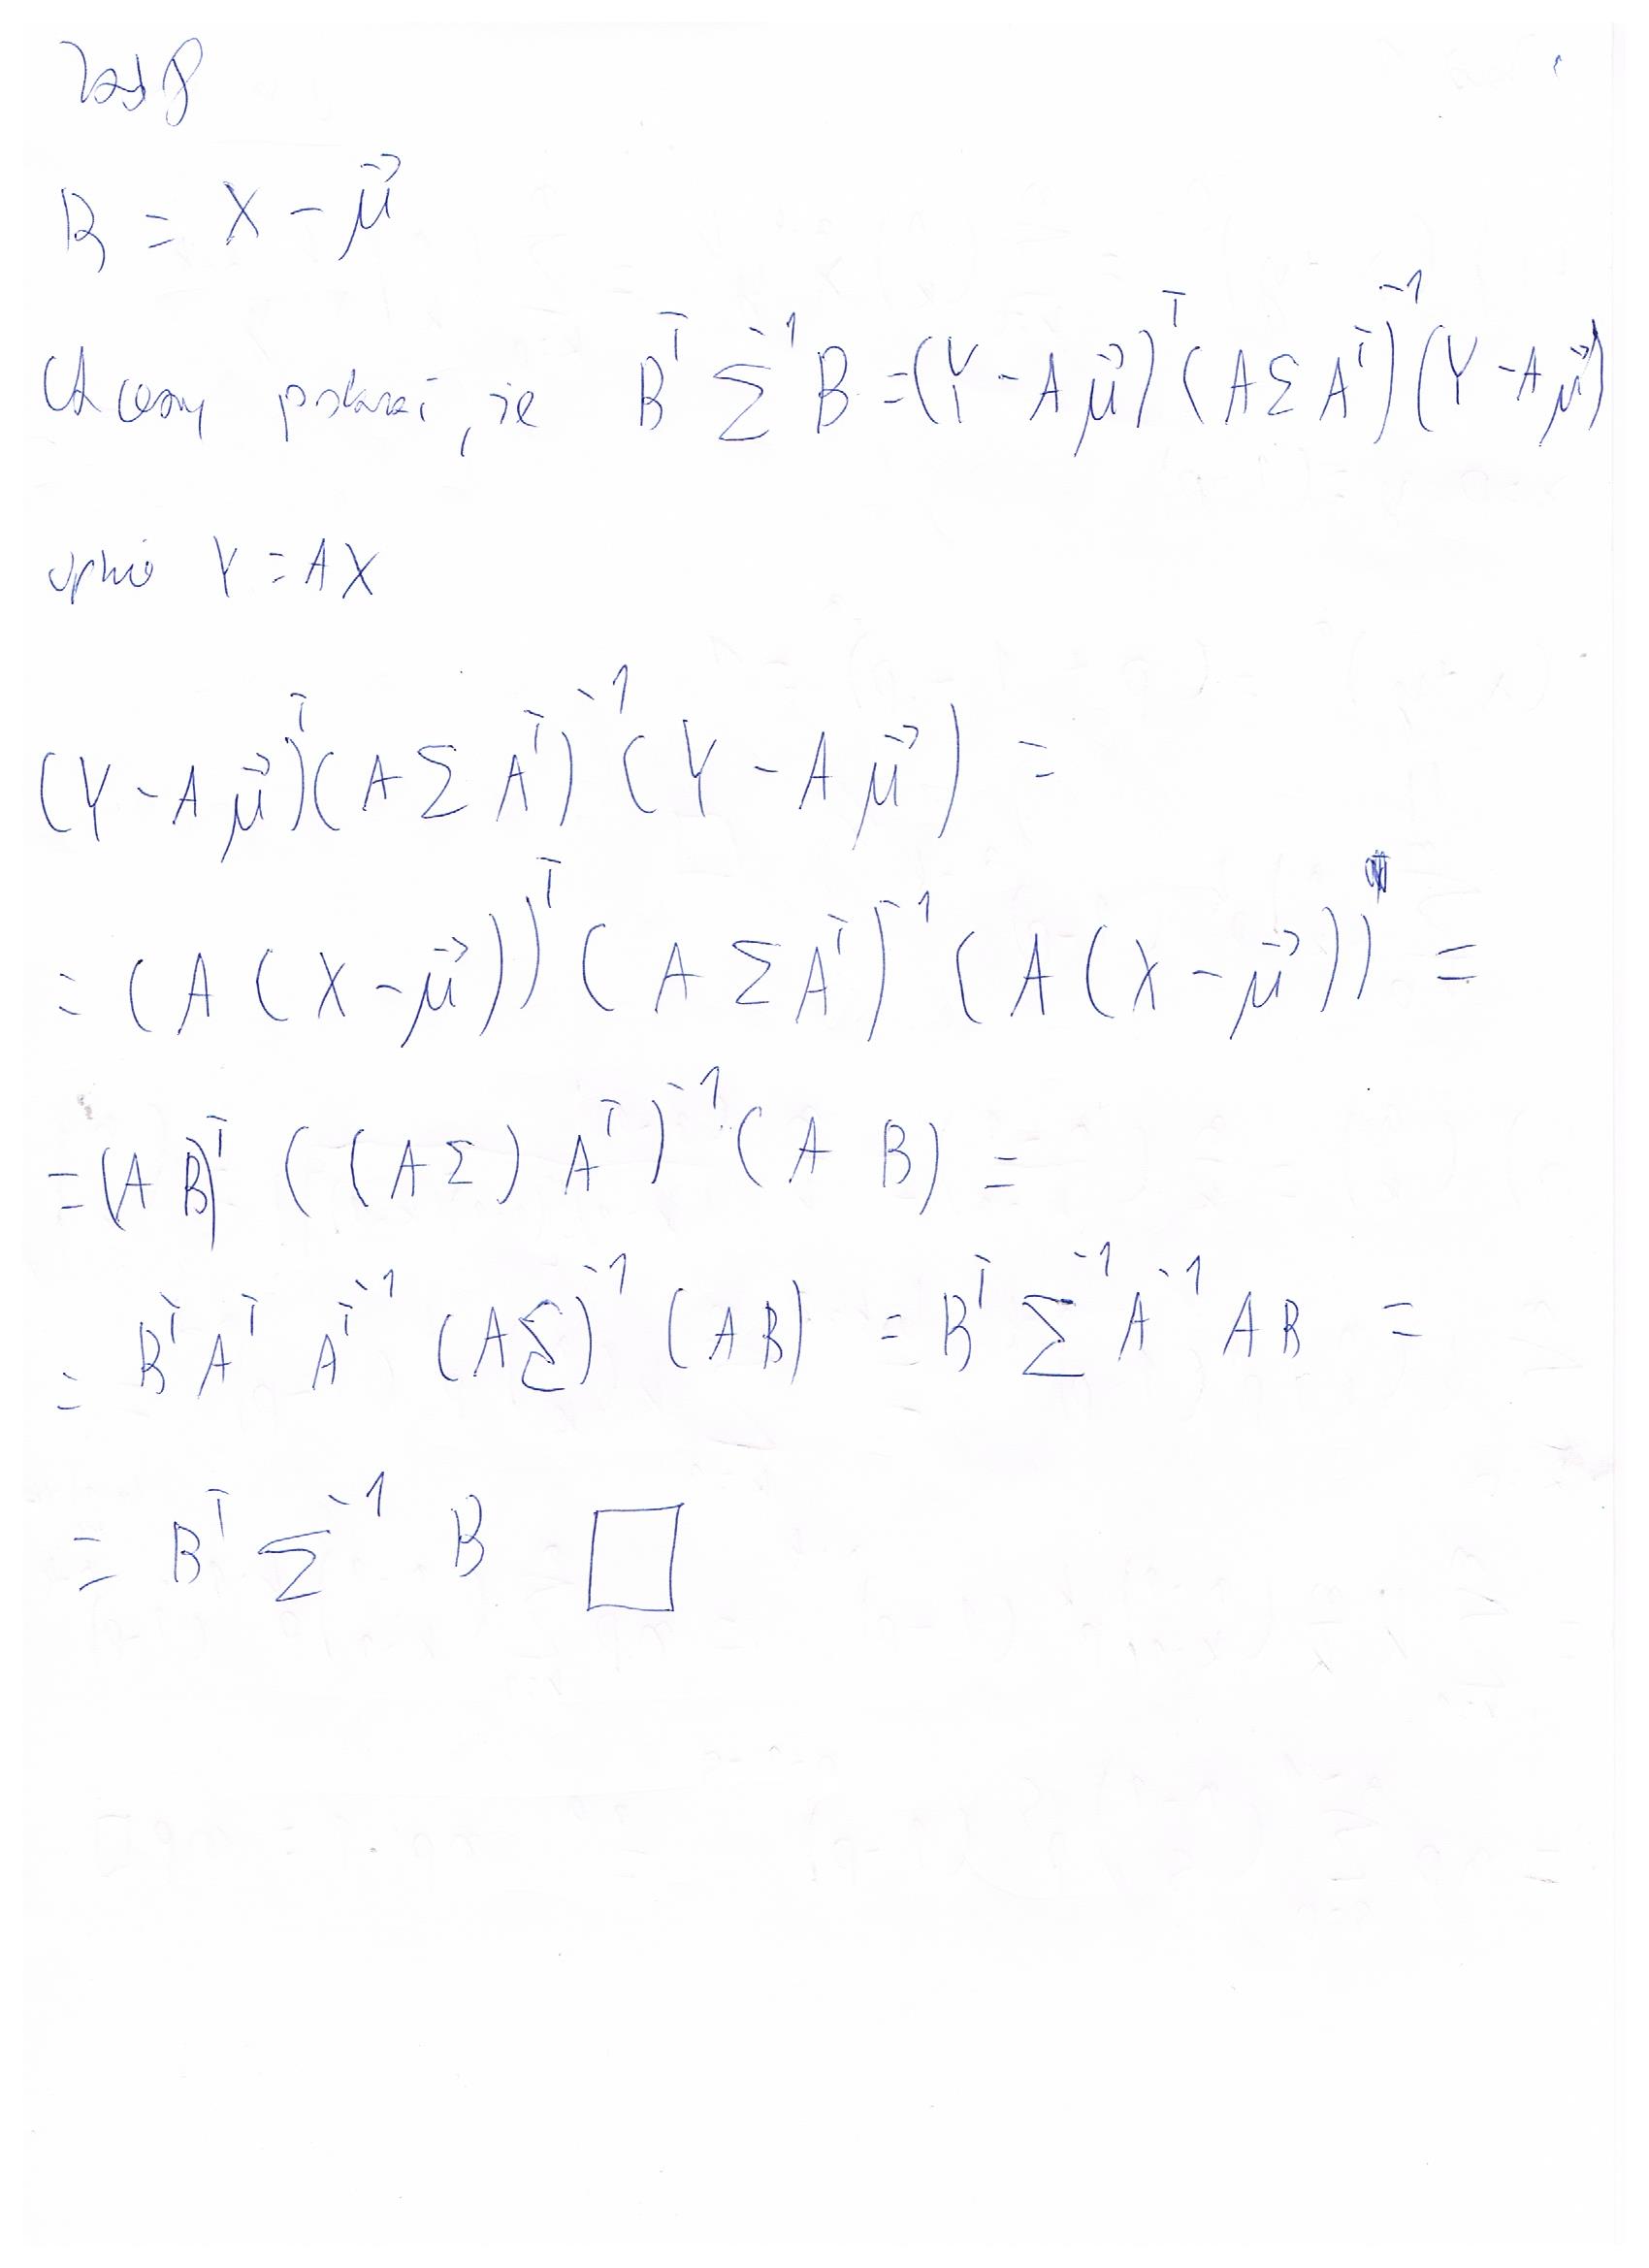 Zad 8
B = X - μ⃗
Chcemy pokazać, że B^T Σ^{-1} B = (Y - A μ⃗)^T (A Σ A^T)^{-1} (Y - A μ⃗)
Y = AX
(Y - A μ⃗)^T (A Σ A^T)^{-1} (Y - A μ⃗) =
= (A (X - μ⃗))^T (A Σ A^T)^{-1} (A (X - μ⃗)) =
= (A B)^T ((A Σ) A^T)^{-1} (A B) =
= B^T A^T A^{T^{-1}} (A Σ)^{-1} (A B) = B^T Σ^{-1} A^{-1} A B =
= B^T Σ^{-1} B □